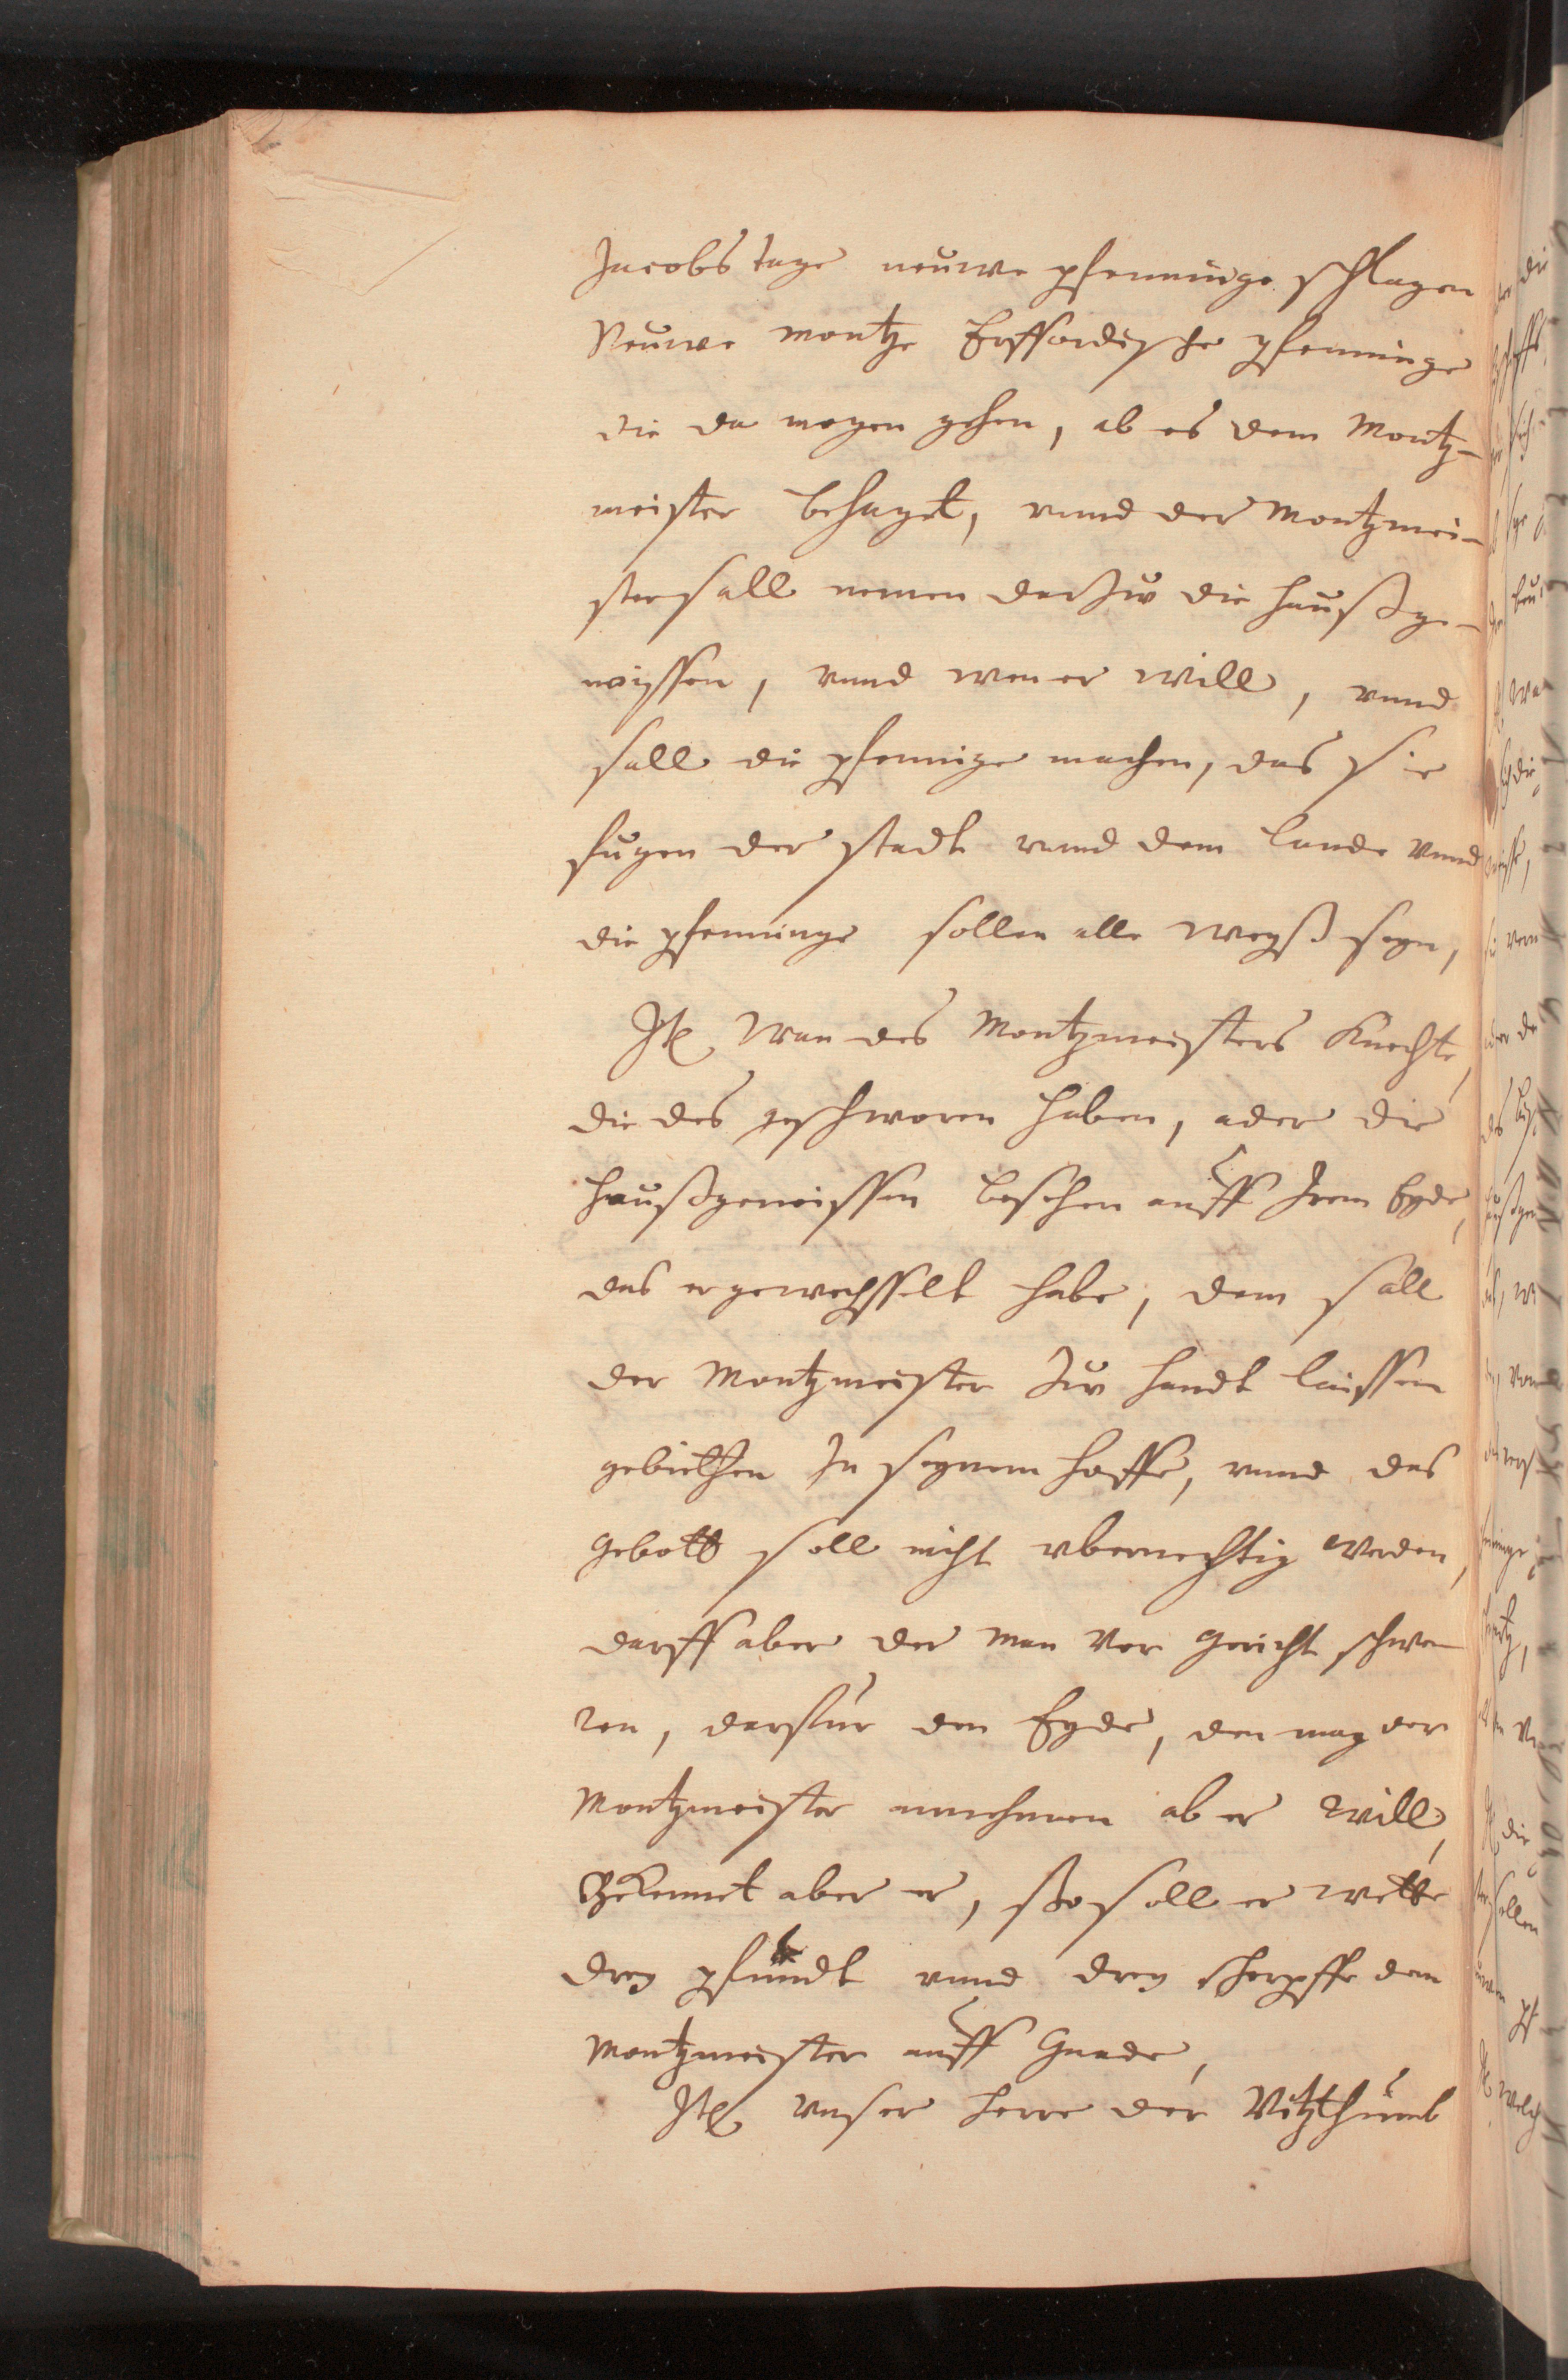 Jacobs tage neuwe pfenninge schlagen
Neuwe montze Erffordische pfenninge
die da mogen gehen, ab es dem Montz-
meister behaget, vnnd der Montzmei-
ster sall nemen darzu die haußge-
noissen, vnnd wen er will, vnnd
sall die pfennige machen, das sie
fugen der stadt vnnd dem lande vnnd
die pfenninge sollen alle weyß seyn,
Jt. Wan des Montzmeisters Knechte,
die des geschworen haben, ader die
haußgenoissen besehen auff Jrem Eyde,
das er gewechsselt habe, dem sall
der Montzmeister zu handt laissen
gebiethen Jn seynem hoffe, vnnd das
gebott soll nicht vbernechtig werden,
darff aber der man vor gericht schwe-
ren, darfur den Eyde, den mag der
Montzmeister annehmen ab er will,
Bekennet aber er, sso soll er wette
drey pfundt vnnd drey scherpffe dem
Montzmeister auff Gnade,
Jt. vnser herre der Vitzthumb